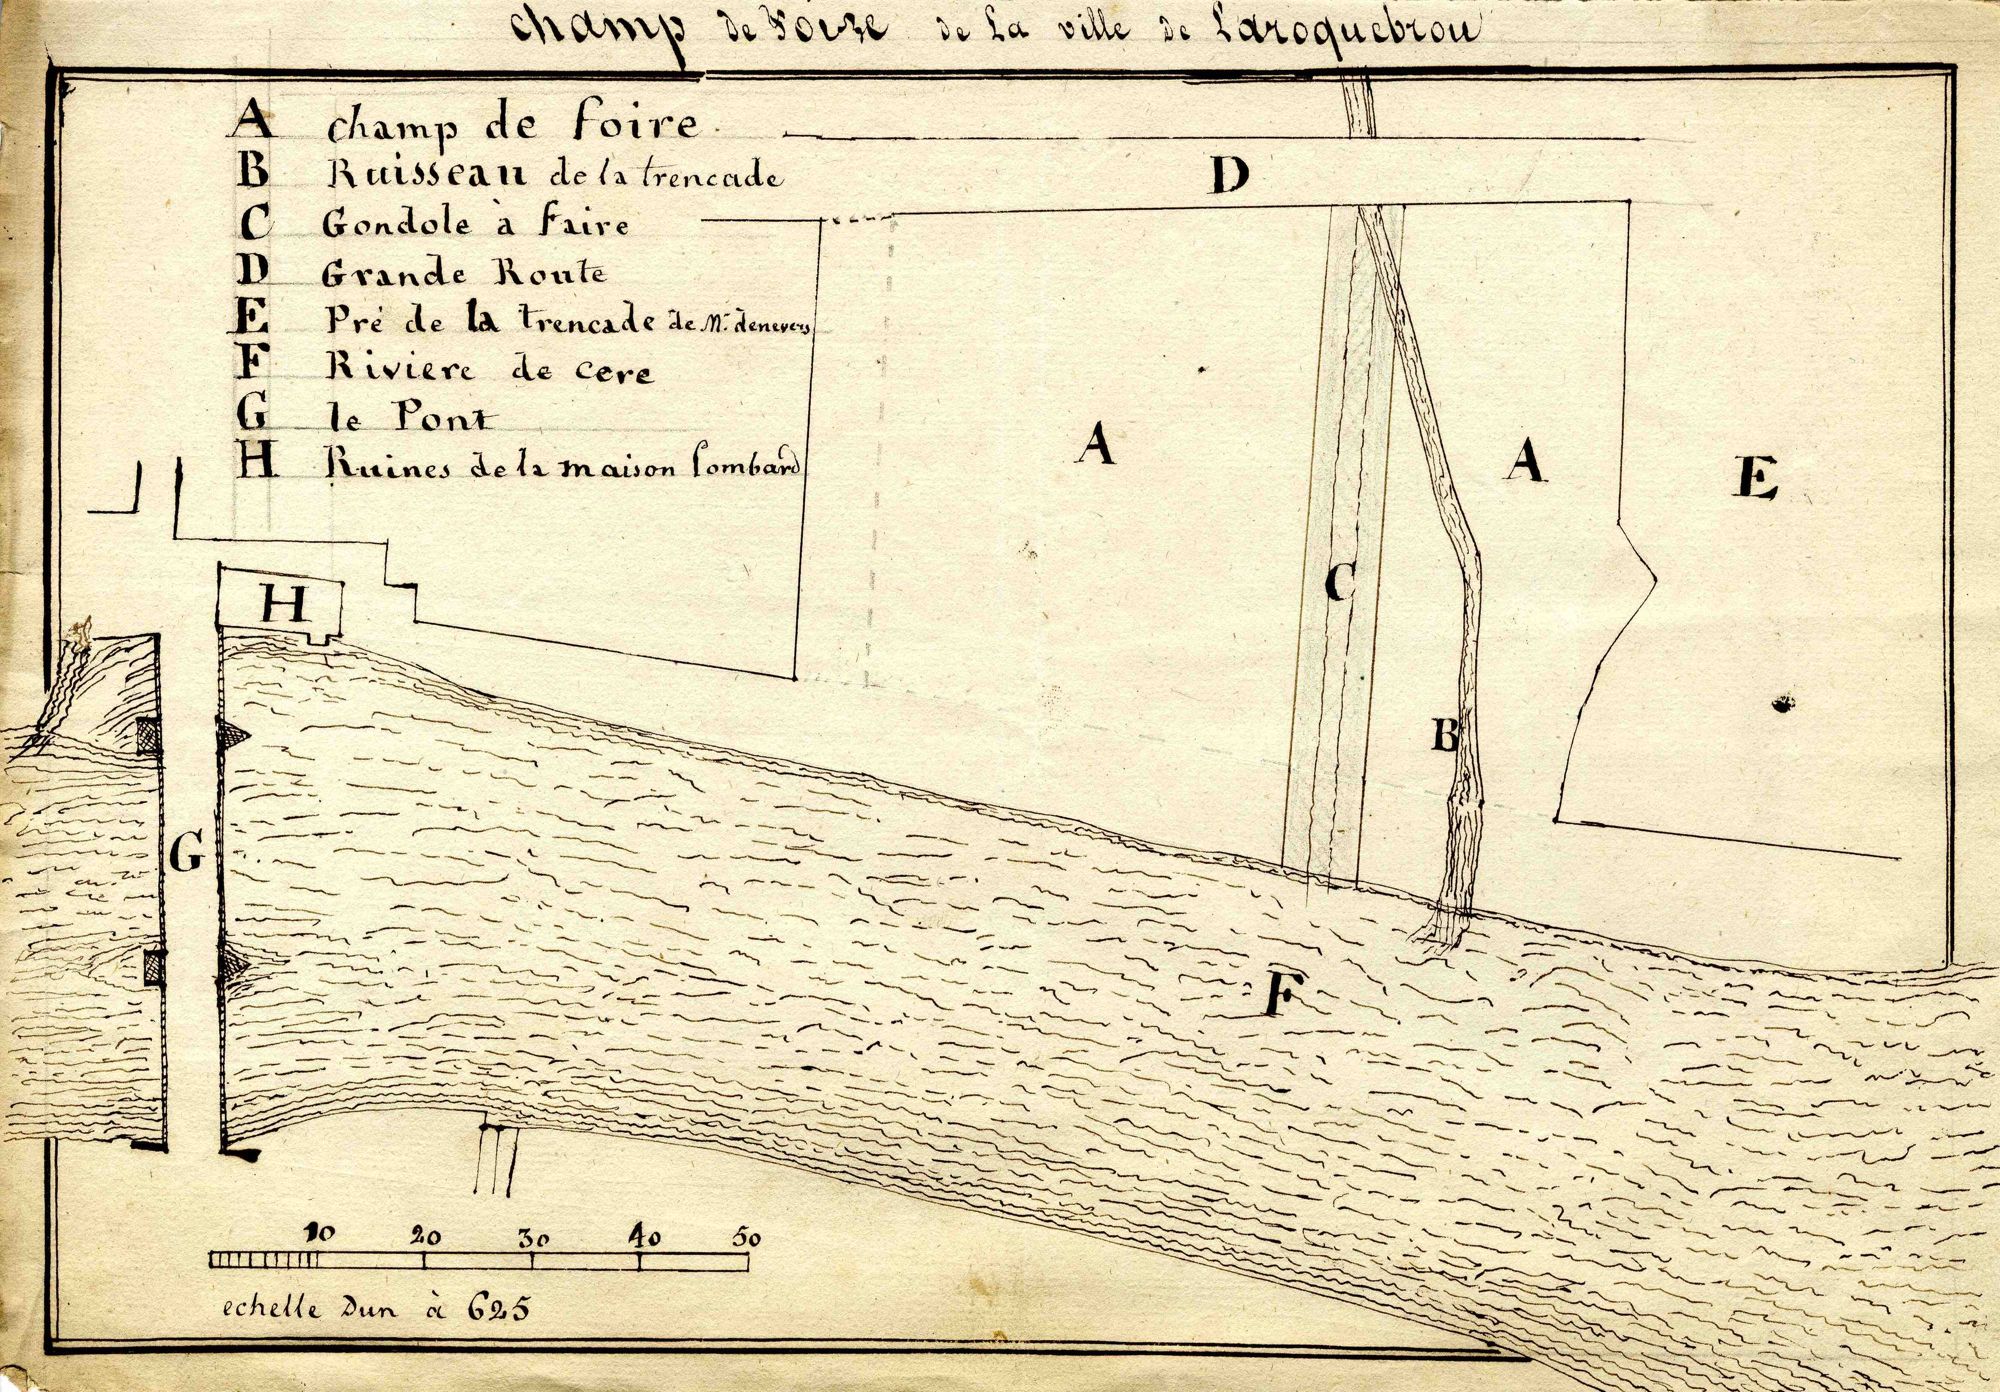 champ de Foire de La ville de Laroquebrou
A champ de foire
B Ruisseau de la trencade
C Gondole à faire
D Grande Route
E Pré de la trencade de Mr. denevers
F Riviere de cere
G le Pont
H Ruines de la maison Lombard
D
A
A
E
C
H
B
G
F
10 20 30 40 50
echelle Dun à 625